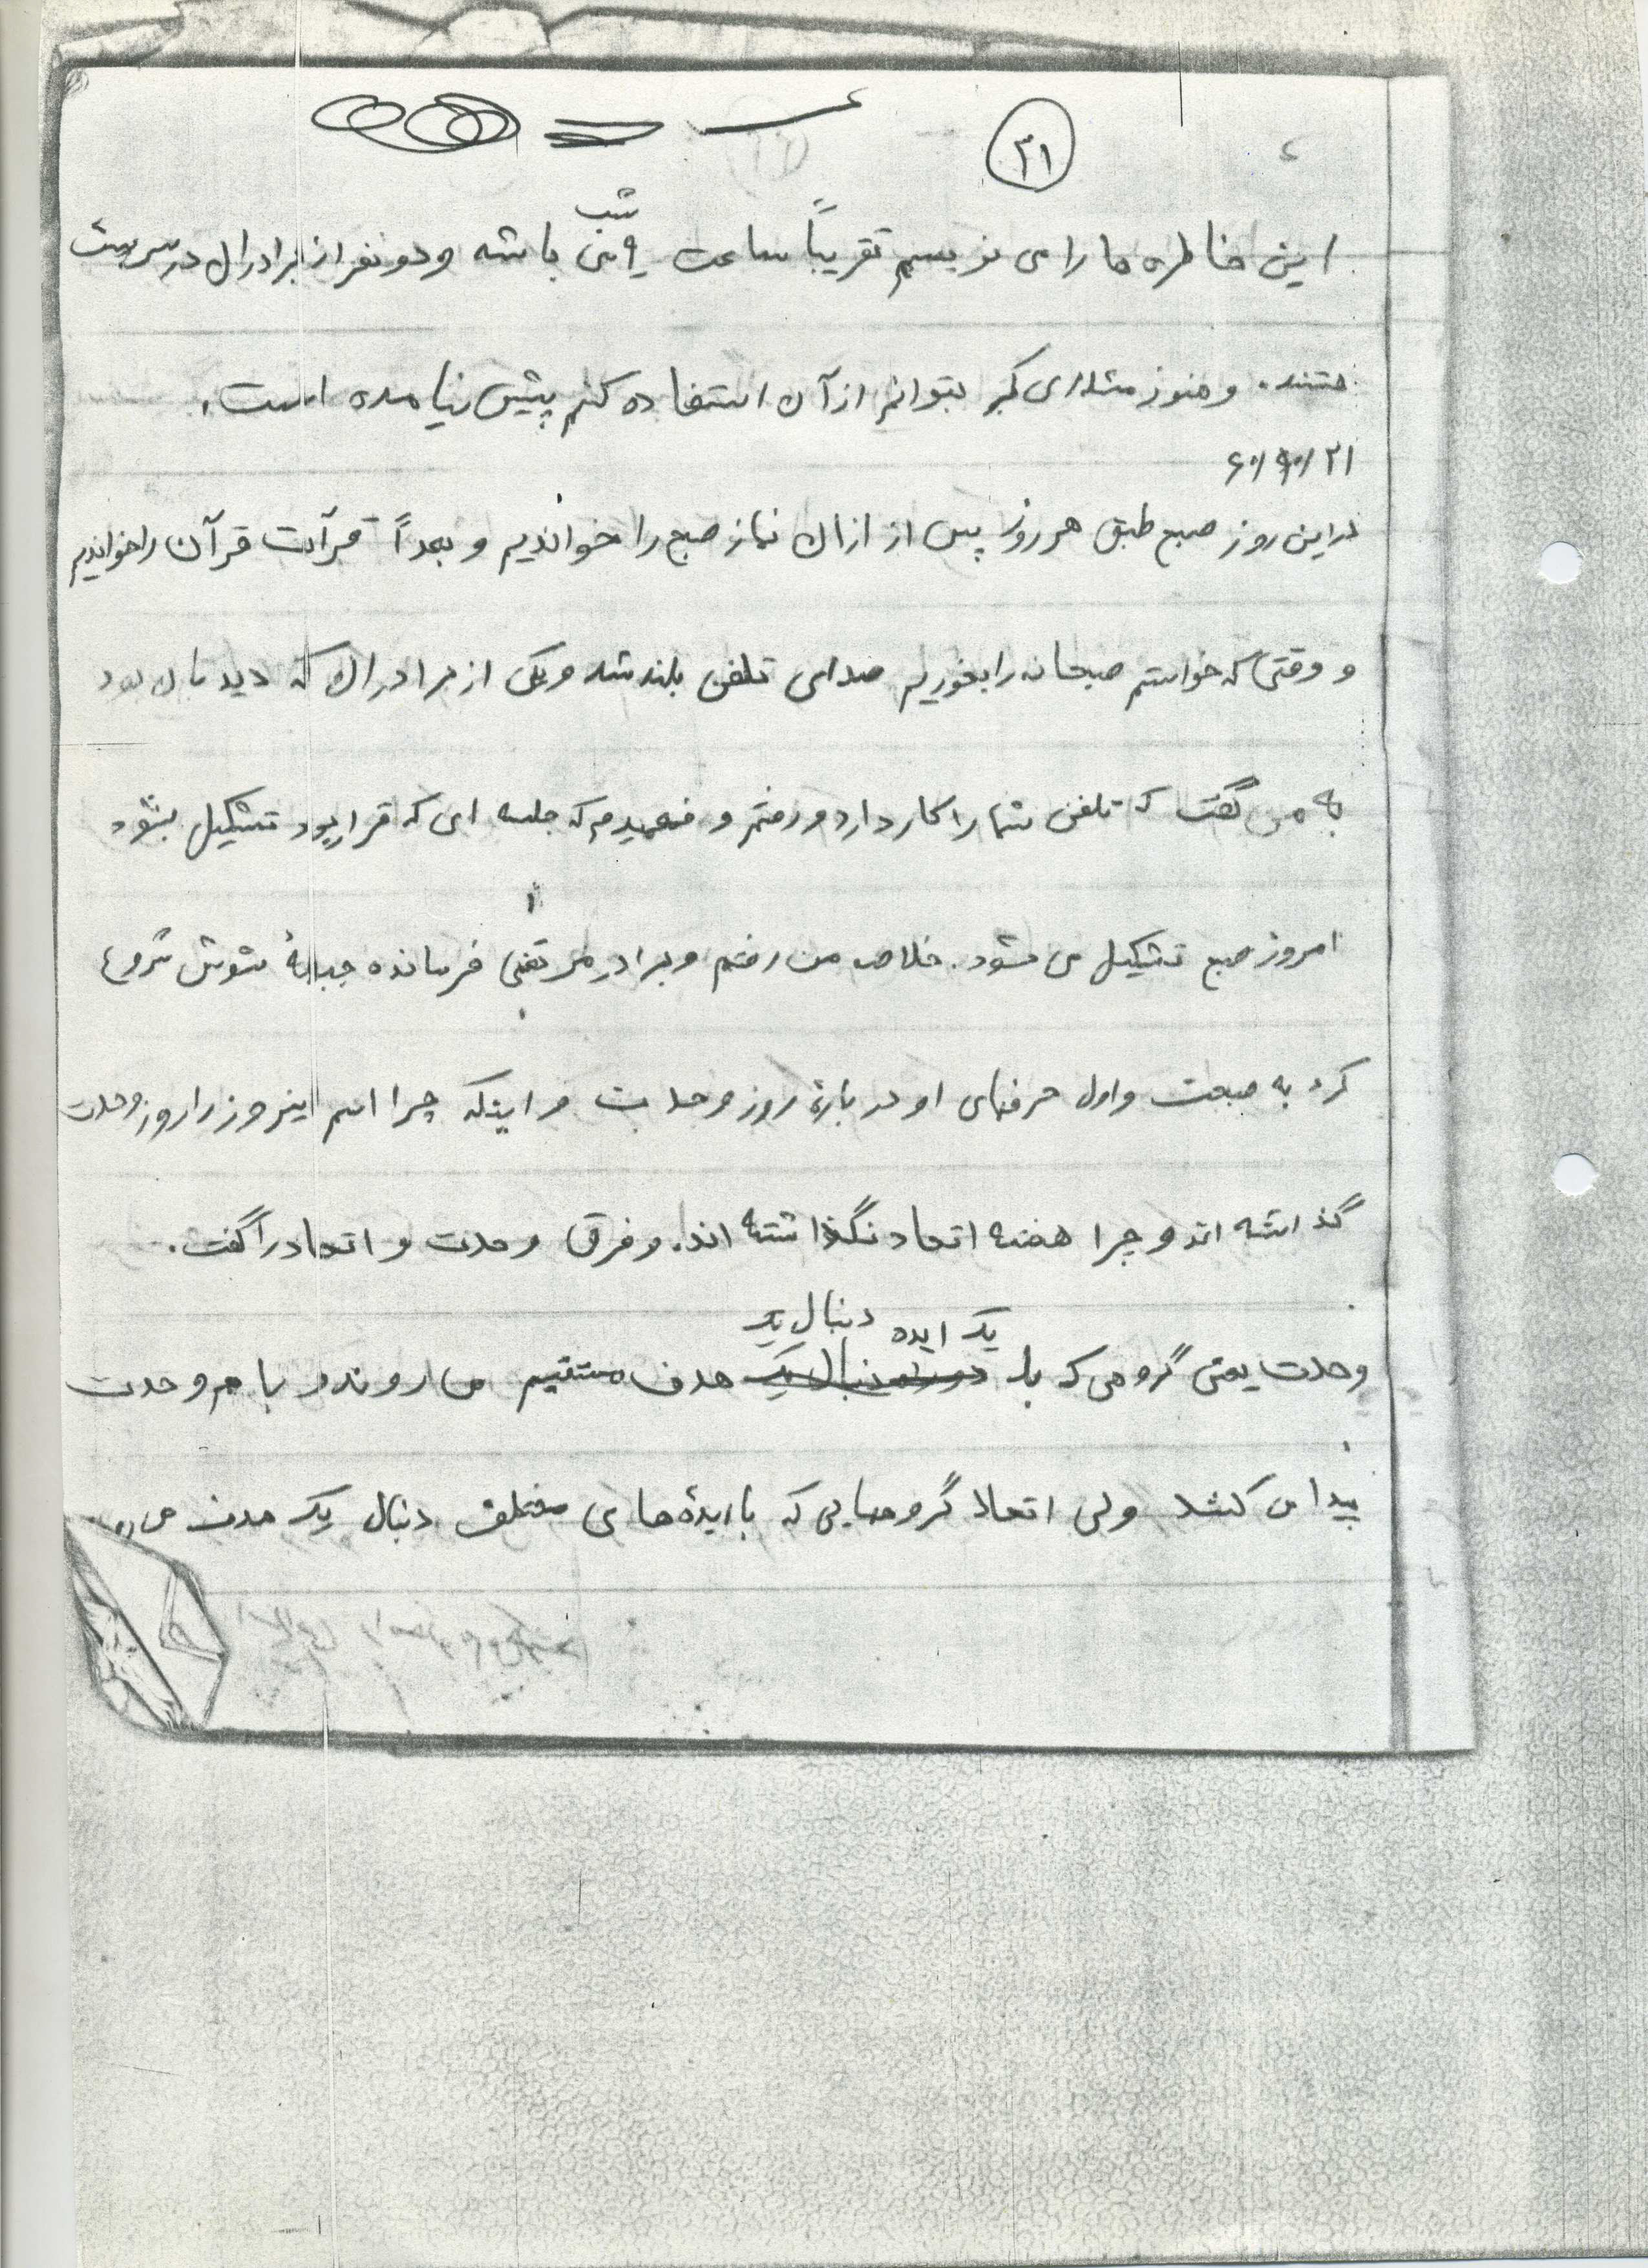 ۳۱
این خاطره ها را می نویسم تقریباً ساعت ۹ شب می باشه و دو نفر از برادران در سر پست
هستند. و هنوز مسئله ای که بتوانم از آن استفاده کنم پیش نیامده است.
۶۰/۱۰/۲۱
در این روز صبح طبق هر روز پس از ازان نماز صبح را خواندیم و بعداً قرآئت قرآن را خواندیم
و وقتی که خواستم صبحانه را بخوریم صدای تلفن بلند شد و یکی از برادران که دیدبان بود
به من گفت که تلفن شما را کار دارد و رفتم و فهمیدم که جلسه ای که قرار بود تشکیل بشود
امروز صبح تشکیل می شود. خلاصه من رفتم و برادر مرتضی فرمانده جبههٔ شوش شروع
کرد به صحبت و اول حرفهای او در بارهٔ روز وحدت و اینکه چرا اسم اینروز را روز وحدت
گذاشته اند و چرا هفته اتحاد نگذاشته اند. و فرق وحدت و اتحاد را گفت.
وحدت یعنی گروهی که با یک ایده دنبال یک هدف مستقیم می روند و با هم وحدت
پیدا می کنند ولی اتحاد گروههایی که با ایدهٔ های مختلف دنبال یک هدف می